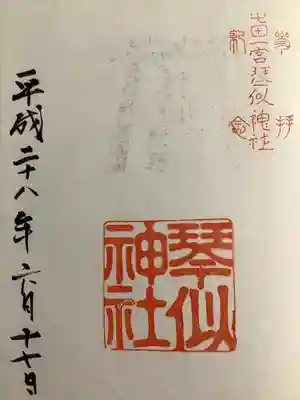 参拝
屯田一宮琴似神社
念
琴似
神社
平成二十八年六月十七日